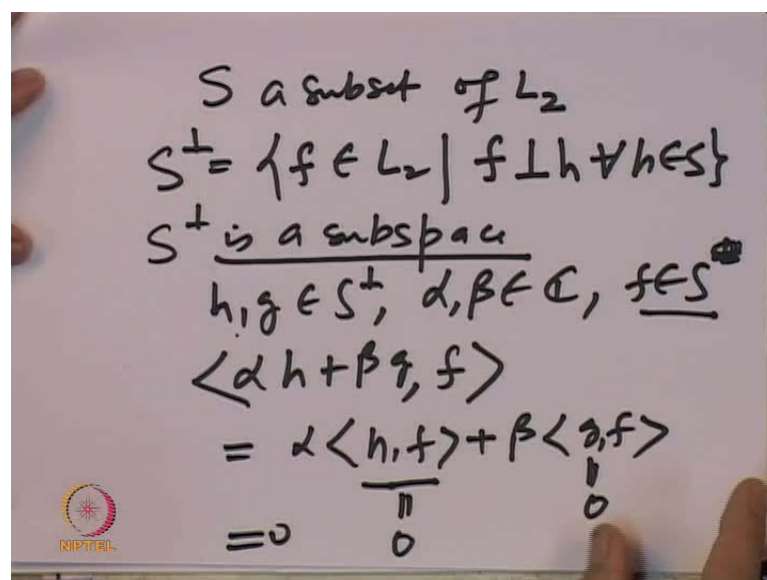 S a subset of L₂
S^⊥ = {f ∈ L₂ | f ⊥ h ∀ h ∈ S}
S^⊥ is a subspace
h, g ∈ S^⊥, α, β ∈ ℂ, f ∈ S
<αh + βg, f>
= α<h, f> + β<g, f>
|| ||
=0 0 0
NPTEL